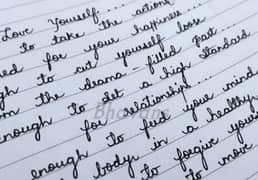 Love Yourself..... 
to take the actions
for your happiness....
to cut yourself loose
the drama-filled Past
to set a high Standard
enough for relationships...
enough to put your mind
body in a healthy
to forgive yourself
to move
Bhavans